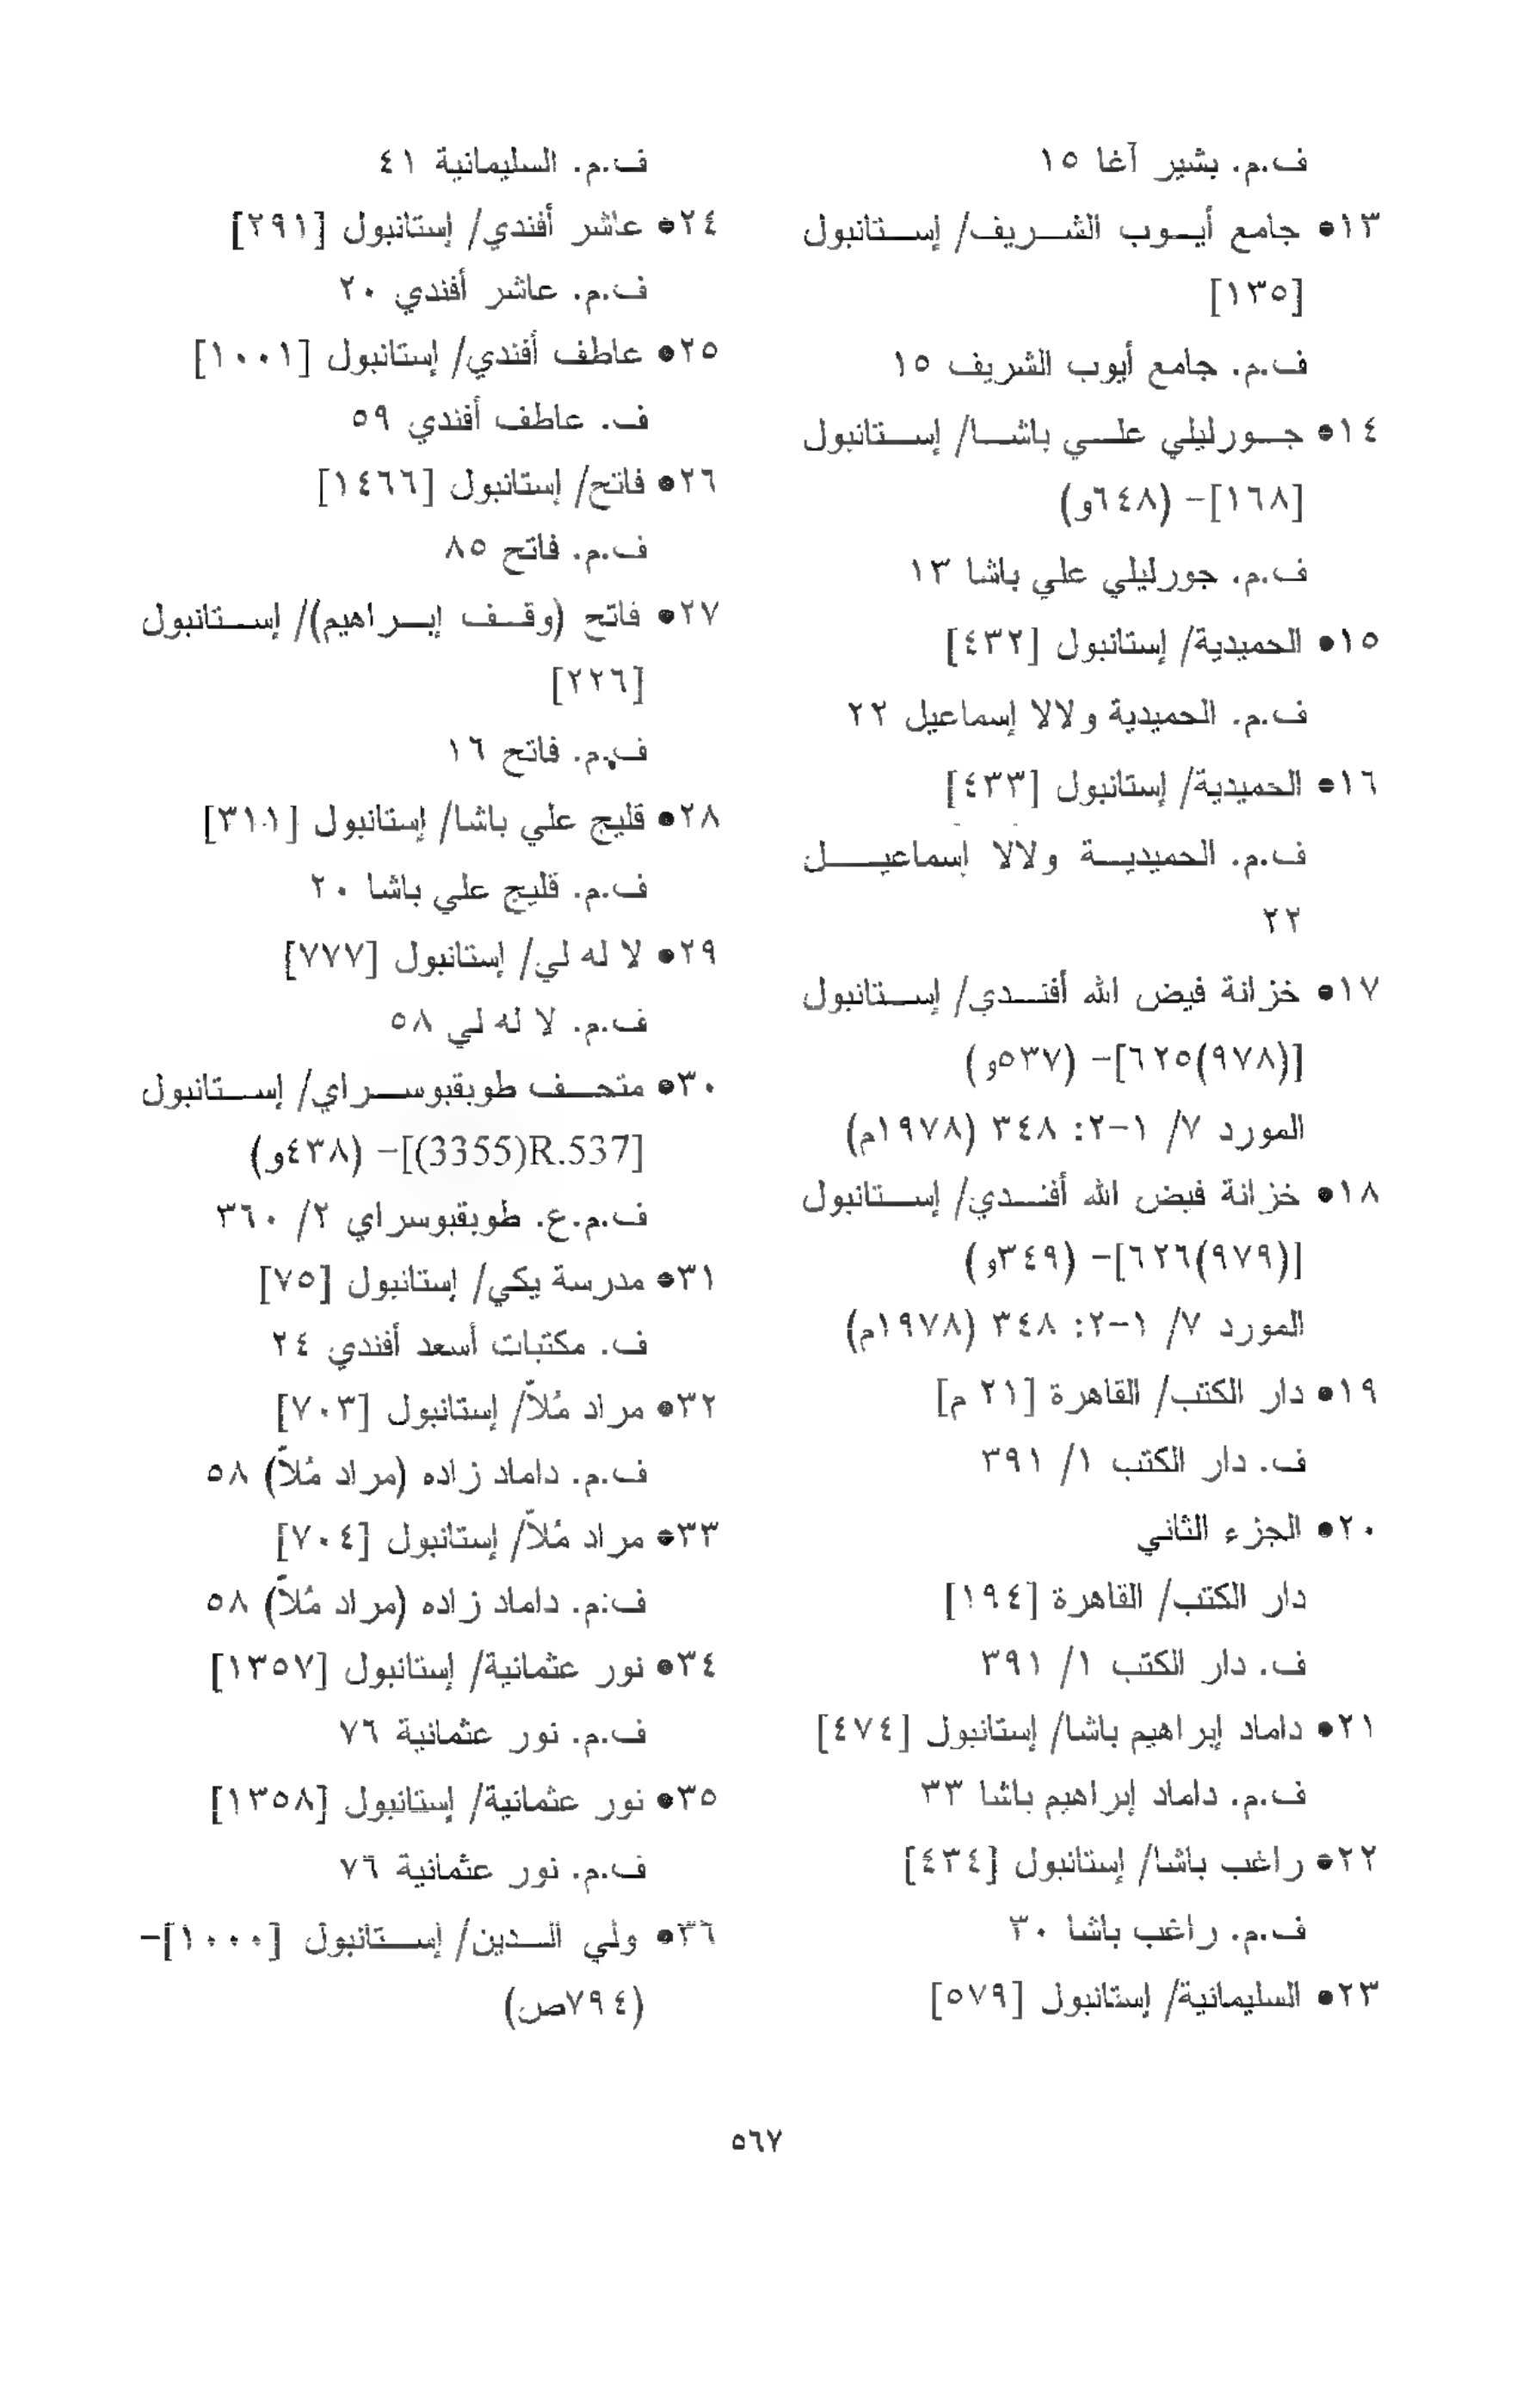 ف.م. بشير آغا ١٥
١٣• جامع أيوب الشريف/ إستانبول
[١٣٥]
ف.م. جامع أيوب الشريف ١٥
١٤• جورليلي علي باشا/ إستانبول
[١٦٨]- (٦٤٨و)
ف.م. جورليلي علي باشا ١٣
١٥• الحميدية/ إستانبول [٤٣٢]
ف.م. الحميدية ولالا إسماعيل ٢٢
١٦• الحميدية/ إستانبول [٤٣٣]
ف.م. الحميدية ولالا إسماعيل
٢٢
١٧• خزانة فيض الله أفندي/ إستانبول
[(٩٧٨)٦٢٥]- (٥٣٧و)
المورد ٧/ ١-٢: ٣٤٨ (١٩٧٨م)
١٨• خزانة فيض الله أفندي/ إستانبول
[(٩٧٩)٦٢٦]- (٣٤٩و)
المورد ٧/ ١-٢: ٣٤٨ (١٩٧٨م)
١٩• دار الكتب/ القاهرة [٢١ م]
ف. دار الكتب ١/ ٣٩١
٢٠• الجزء الثاني
دار الكتب/ القاهرة [١٩٤]
ف. دار الكتب ١/ ٣٩١
٢١• داماد إبراهيم باشا/ إستانبول [٤٧٤]
ف.م. داماد إبراهيم باشا ٣٣
٢٢• راغب باشا/ إستانبول [٤٣٤]
ف.م. راغب باشا ٣٠
٢٣• السليمانية/ إستانبول [٥٧٩]
ف.م. السليمانية ٤١
٢٤• عاشر أفندي/ إستانبول [٢٩١]
ف.م. عاشر أفندي ٢٠
٢٥• عاطف أفندي/ إستانبول [١٠٠١]
ف. عاطف أفندي ٥٩
٢٦• فاتح/ إستانبول [١٤٦٦]
ف.م. فاتح ٨٥
٢٧• فاتح (وقف إبراهيم)/ إستانبول
[٢٢٦]
ف.م. فاتح ١٦
٢٨• قليج علي باشا/ إستانبول [٣١١]
ف.م. قليج علي باشا ٢٠
٢٩• لا له لي/ إستانبول [٧٧٧]
ف.م. لا له لي ٥٨
٣٠• متحف طوبقبوسراي/ إستانبول
[R.537(3355)]- (٤٣٨و)
ف.م.ع. طوبقبوسراي ٢/ ٣٦٠
٣١• مدرسة يكي/ إستانبول [٧٥]
ف. مكتبات أسعد أفندي ٢٤
٣٢• مراد مُلاّ/ إستانبول [٧٠٣]
ف.م. داماد زاده (مراد مُلاّ) ٥٨
٣٣• مراد مُلاّ/ إستانبول [٧٠٤]
ف.م. داماد زاده (مراد مُلاّ) ٥٨
٣٤• نور عثمانية/ إستانبول [١٣٥٧]
ف.م. نور عثمانية ٧٦
٣٥• نور عثمانية/ إستانبول [١٣٥٨]
ف.م. نور عثمانية ٧٦
٣٦• ولي الدين/ إستانبول [١٠٠٠]-
(٧٩٤ص)
٥٦٧